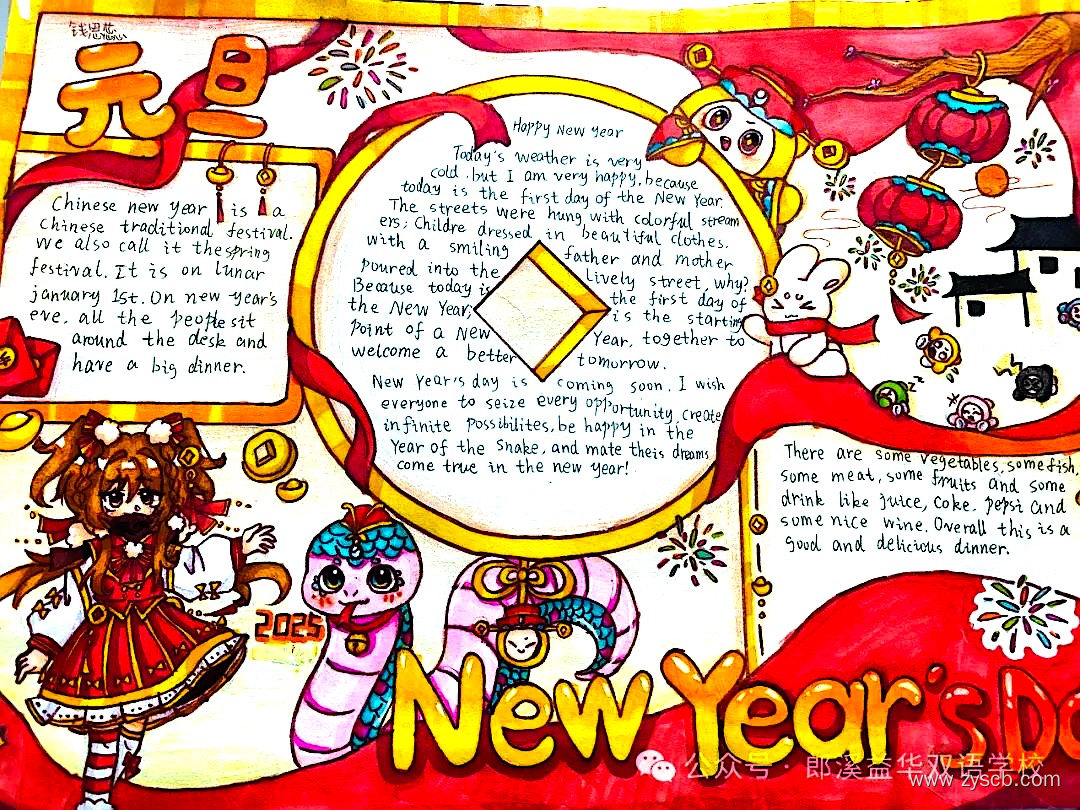 钱思慈
元旦
Chinese new year is a
Chinese traditional festival.
We also call it the spring
festival. It is on lunar
january 1st. On new year's
eve, all the people sit
around the desk and
have a big dinner.
Happy New Year
Today's weather is very
cold. but I am very happy, because
today is the first day of the New Year.
The streets were hung with colorful stream
ers; Childre dressed in beautiful clothes.
with a smiling father and mother
poured into the lively street, why?
Because today is the first day of
the New Year, is the starting
Point of a New Year, together to
welcome a better tomorrow.
New Year's day is coming soon. I wish
everyone to seize every opportunity, create
infinite possibilites, be happy in the
Year of the Snake, and mate theis dreams
come true in the new year!
There are some vegetables, some fish,
some meat, some fruits and some
drink like juice, coke. pepsi and
some nice wine. Overall this is a
good and delicious dinner.
2025
New Year's Da
公众号 · 郎溪益华双语学校
www.zyscb.com